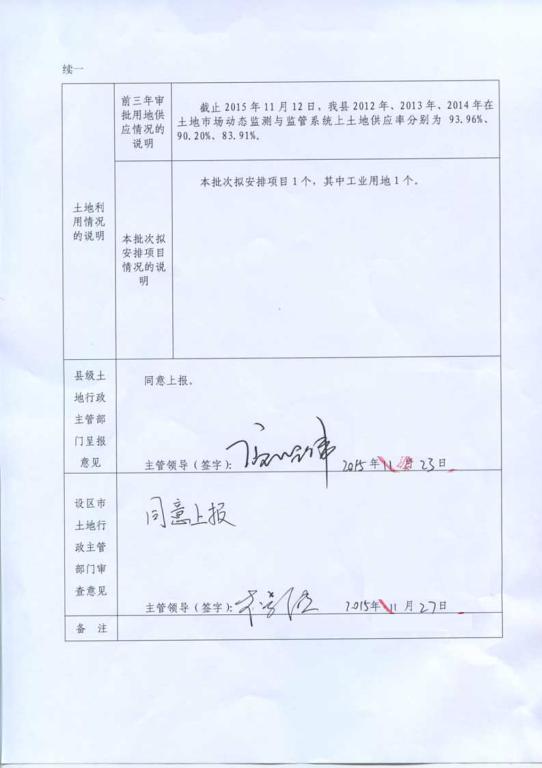 续一
土地利
用情况
的说明
前三年审
批用地供
应情况的
说明
截止 2015 年 11 月 12 日，我县 2012 年、2013 年、2014 年在
土地市场动态监测与监管系统上土地供应率分别为 93.96%、
90.20%、83.91%。
本批次拟
安排项目
情况的说
明
本批次拟安排项目 1 个，其中工业用地 1 个。
县级土
地行政
主管部
门呈报
意见
同意上报。
主管领导（签字）： 2015 年 11 月 23 日
设区市
土地行
政主管
部门审
查意见
同意上报
主管领导（签字）： 2015 年 11 月 27 日
备 注